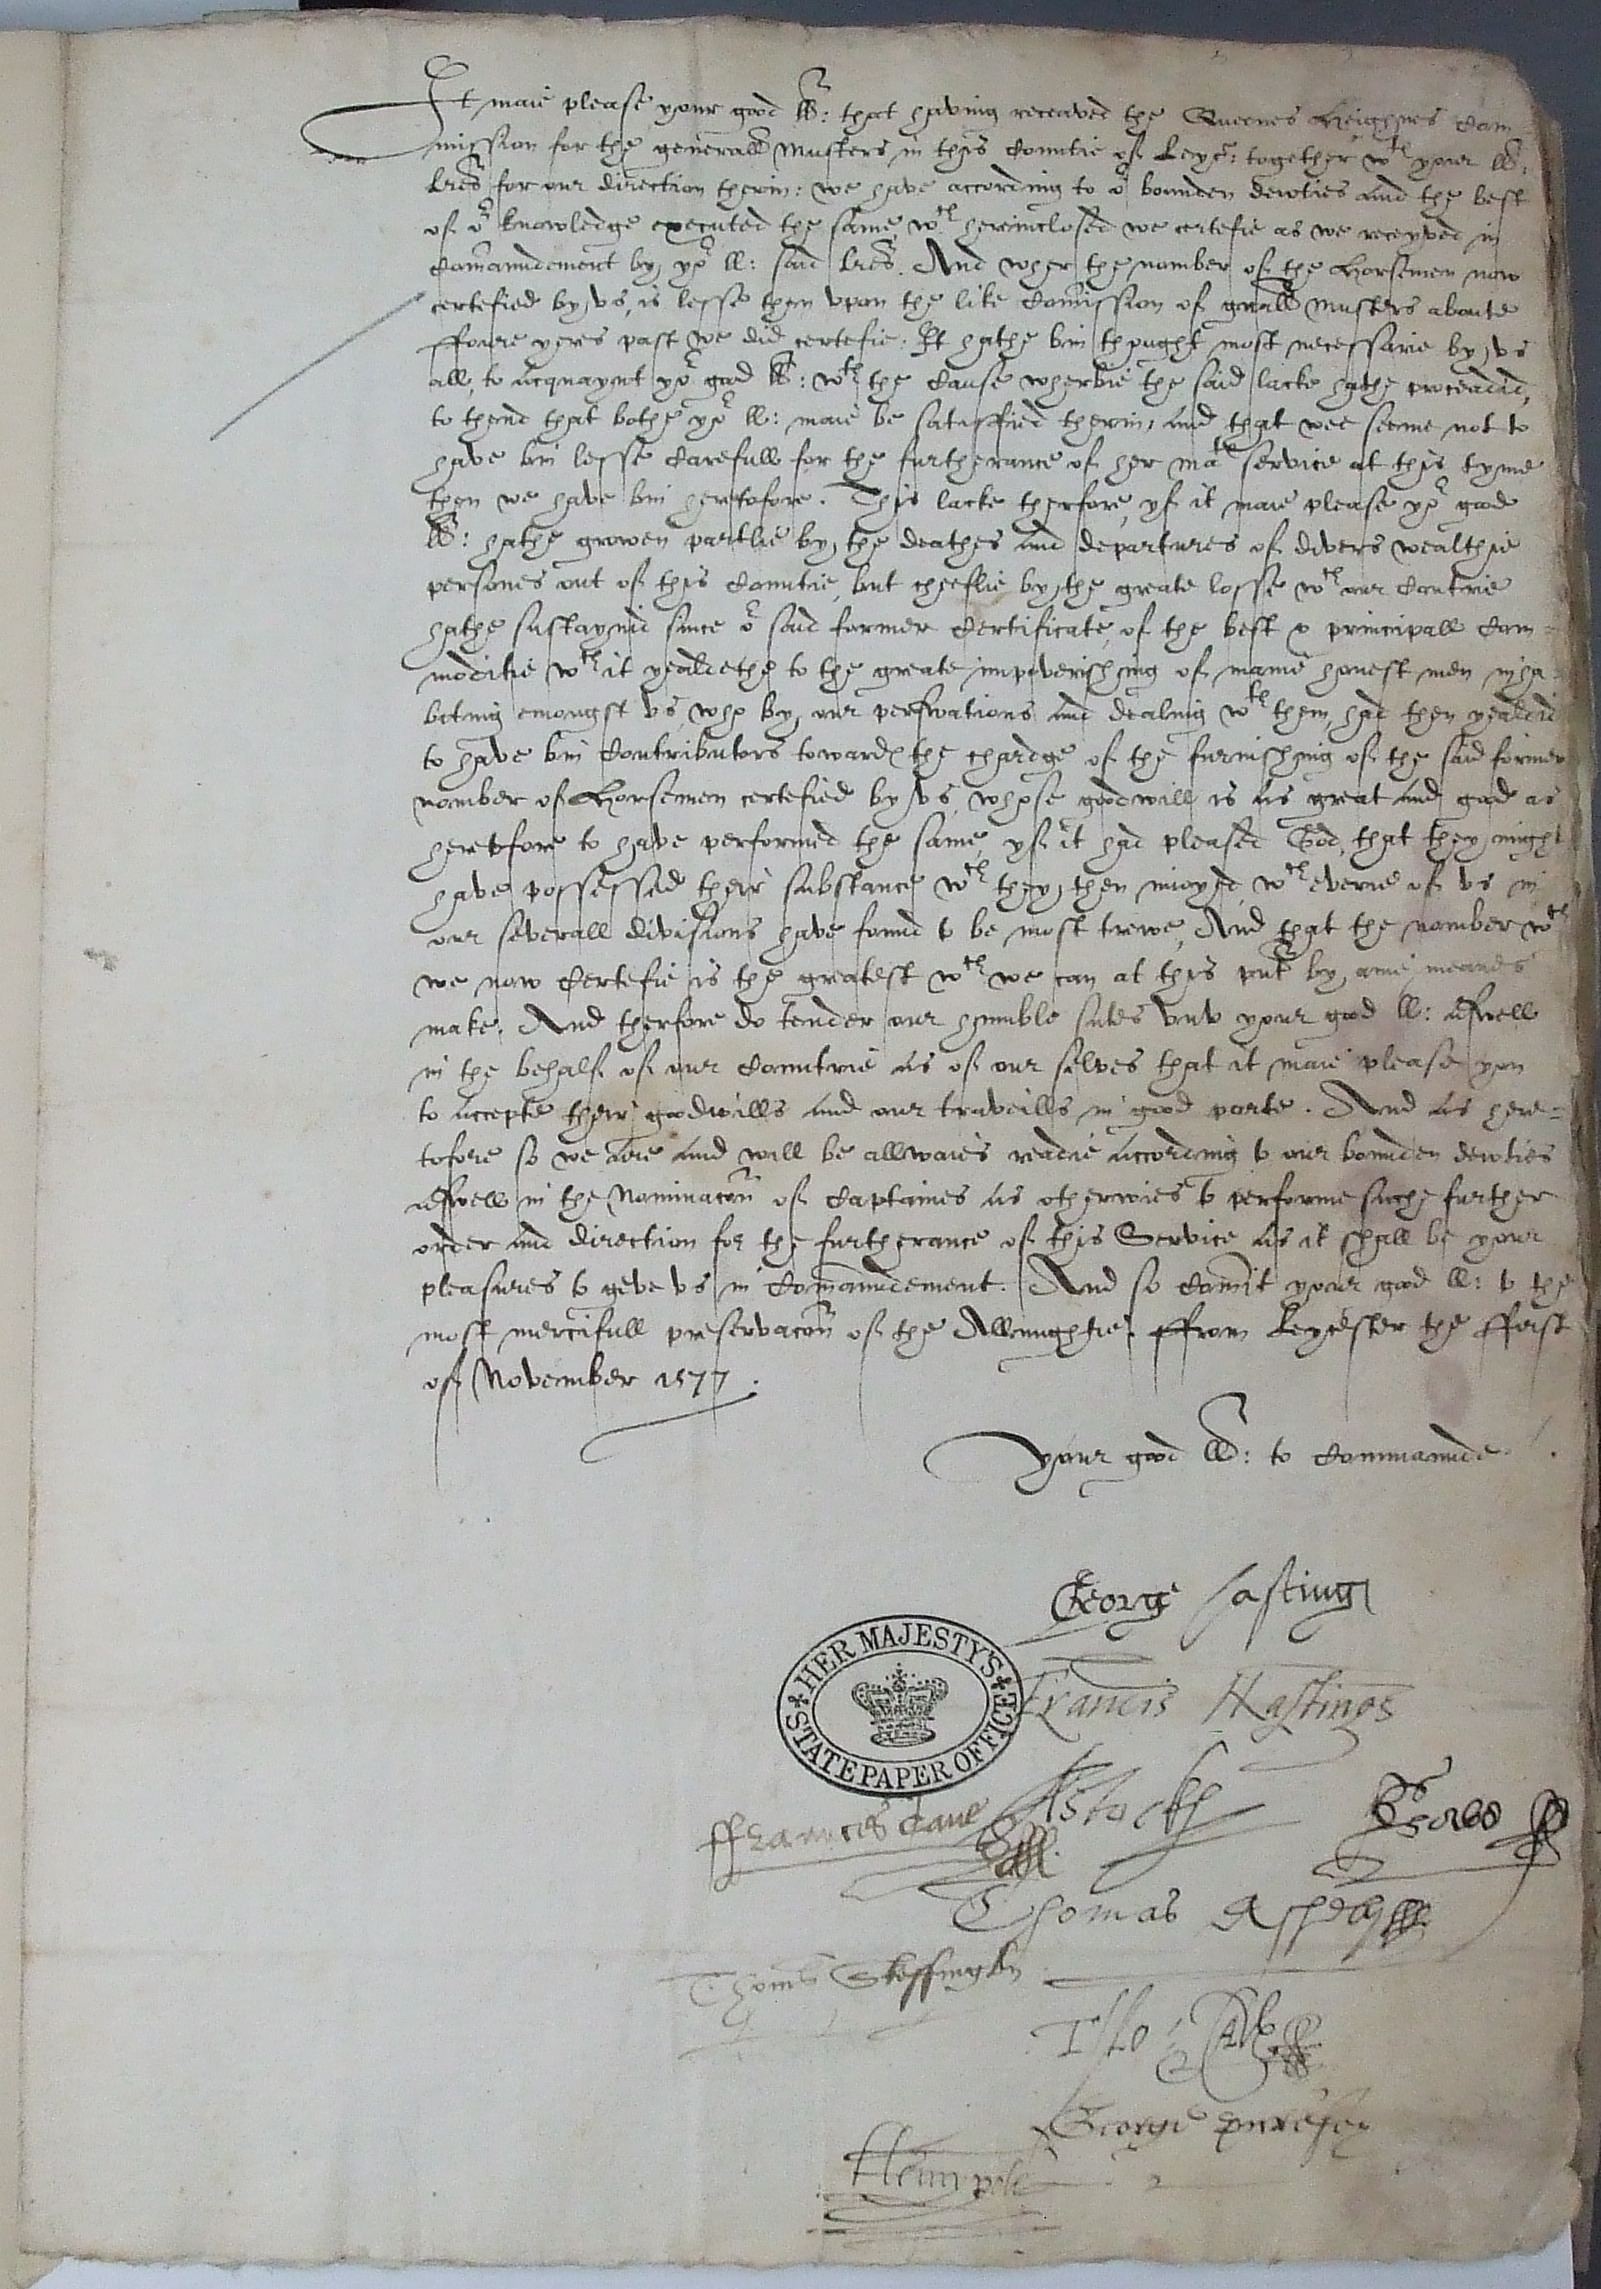 It maie please your good ll: that having receaved the Queenes Heighnes Com-
mission for the generall Musters in this Countie of Leyc: together wth your ll:
lres for our direction therin: we have according to or bounden dewties and the best
of or knowledge executed the same, wch hereinclosed we certefie as we receyved in
Comaundement by yor ll: said lres. And wher the nomber of the Horsemen now
certefied by vs, is lesse then vpon the like Comission of gnall Musters aboute
ffower yeres past we did certefie: It hathe bin thought most necessarie by vs
all, to acquaynt yor good ll: wth the Cause wherbie the said lacke hathe proceadid,
to thend that bothe yor ll: maie be satisffied therin, and that wee seeme not to
have bin lesse Carefull for the furtherance of her Mates service at this tyme
then we have bin heretofore. This lacke therfore, yf it maie please yor good
ll: hathe growen partlie by the deathes and departures of divers wealthie
persones out of this Countie, but cheeflie by the greate losse wch our Contrie
hathe sustaynid since or said former Certificate, of the best & principall Com-
moditie wch it yealdethe to the greate impoverishing of manie honest men inha-
biting emongst vs, who by our perswations and dealing wth them, had then yealdid
to have bin Contributors towardes the chardge of the furnishing of the said former
nomber of Horsemen certefied by vs, whose goodwill is as great and good as
heretofore to have performed the same, yf it had pleased God, that they might
have possessed their substance wch they then inioyed, wch everie of vs in
our severall divisions have found to be most trewe, And that the nomber wch
we now Certefie is the greatest wch we can at this pnt by anie meanes
make. And therfore do tender our humble sutes vnto your good ll: aswell
in the behalf of our Countrie as of our selves that it maie please you
to accepte their goodwills and our traveills in good parte. And as here-
tofore so we are and will be allwaies readie according to our bounden dewties
aswell in the Nominacon of Captaines as otherwies to performe suche further
order and direction for the furtherance of this Service as it shall be your
pleasures to geve vs in Comaundement. And so Comit your good ll: to the
most mercifull preservacon of the Allmightie. ffrom Leycester the ffirst
of November 1577.
Your good ll: to Commaunde.
George Hastings
HER MAJESTY'S STATE PAPER OFFICE
Francis Hastings
ffraunces Cave
A Stocky
Thomas Asheby
Thoms Skeffington
George purefey
Henry pole